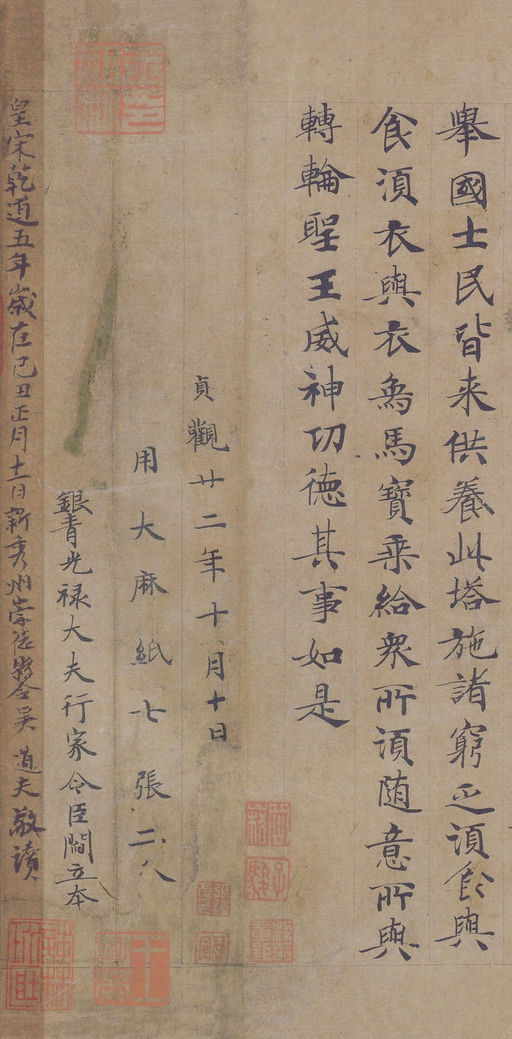 舉國士民皆来供養此塔施諸窮乏須食與
食須衣與衣為馬寶乘給衆所須随意所與
轉輪聖王威神功德其事如是
貞觀廿二年十月十日
用大麻紙七張二分
銀青光禄大夫行家令臣閻立本
皇宋乾道五年歲在己丑正月十一日新秀州崇德縣令吴道夫敬讀